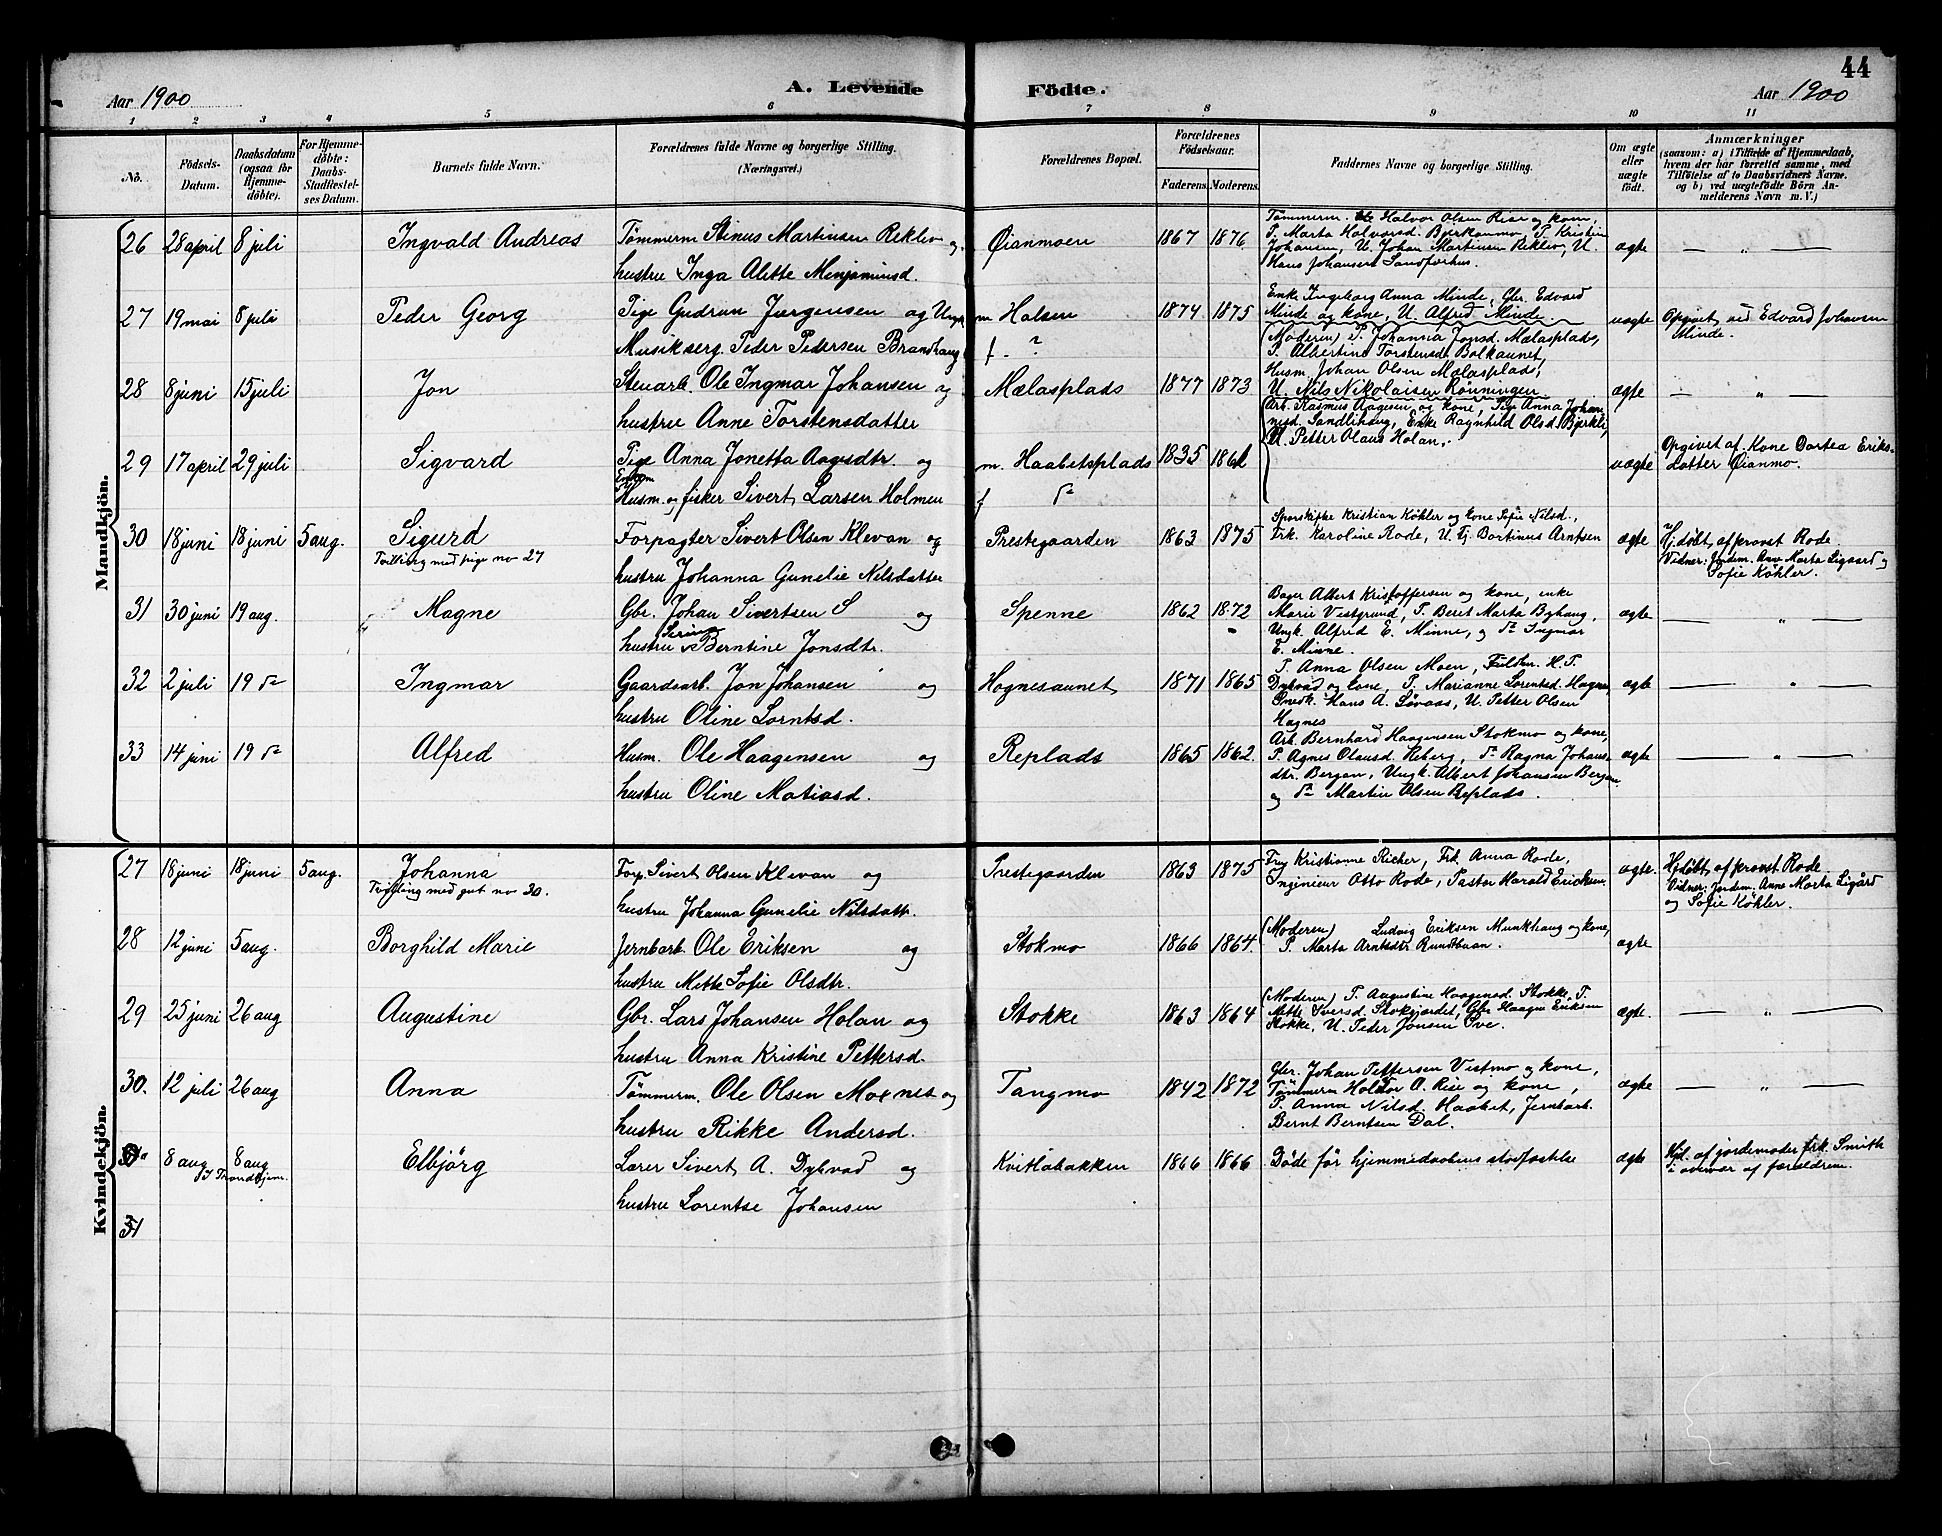 44
Aar 1900 A. Levende Födte. Aar 1900
1 2 3 4 5 6 7 8 9 10 11
No. Födsels-Datum. Daabsdatum (ogsaa for Hjemmedöbte). For Hjemmedöbte: Daabs-Stadfæstelses Datum. Barnets fulde Navn. Forældrenes fulde Navne og borgerlige Stilling. (Næringsvei.) Forældrenes Bopæl. Forældrenes Födselsaar. Faderens. Moderens. Faddernes Navne og borgerlige Stilling. Om ægte eller uægte födt. Anmærkninger (saasom: a) i Tilfælde af Hjemmedaab, hvem der har forrettet samme, med Tilföielse af to Daabsvidners Navne. og b) ved uægtefödte Börn Anmelderens Navn m. V.)
Mandkjön.
26 28 april 8 juli Ingvald Andreas Tømmerm Stinus Martinsen Reklev og Øianmoen 1867 1876 Tømmerm. Ole Halvor Olsen Rise og kone,
T. Marta Halvorsd. Bjerkanmo, T. Kristine
Johansen, U. Johan Martinsen Reklev, U. ægte — „ —
hustru Inga Alette Menjaminsd. Hans Johansen Sandfærhus.
27 19 mai 8 juli Peder Georg Pige Gudrun Jørgensen og Ungk m Halsen 1874 1875 Enke Ingeborg Anna Minde, Gbr. Edvard
Minde og kone, U. Alfred Minde. uægte Opgivet ved Edvard Johansen
Minde.
Musikserg. Peder Pedersen Brandhaug f. - ? (Moderen) P. Johanna Jonsd. Mælasplads,
P. Albertine Torstensdr Bolkaunet,
28 8 juni 15 juli Jon Stenarb. Ole Ingmar Johansen og Mælasplads 1877 1873 Husm. Johan Olsen Mælasplads,
U. Nils Nikolaisen Rønningen ægte — „ —
hustru Anne Torstensdatter Arb. Rasmus Aagesen og kone, Pige Anna Johan
nesd. Sandlihaug, Enke Ragnhild Olsd. Bjerkli,
U. Petter Olaus Holan.
29 17 april 29 juli Sigvard Pige Anna Jonetta Aagesdtr. og m. Haabetsplads 1835 1861 uægte Opgivet af Kone Dortea Eriks-
datter Øianmo.
Enkem
Husm. og fisker Sivert Larsen Holmen f do
30 18 juni 18 juni 5 aug. Sigurd Forpagter Sivert Olsen Klevan og Prestegaarden 1863 1875 Sporskifte Kristian Køhler og kone Sofie Nilsd.,
Frk. Karoline Rode, U. Tj. Bortinus Arntsen ægte Hj. døbt, af provst Rode.
Tvilling med pige no 27 Vidner: Jordem. Ane Marta Ligaard og
Sofie Køhler.
hustru Johanna Gunelie Nilsdatter
31 30 juni 19 aug. Magne Gbr. Johan Sivertsen S og Spenne 1862 1872 Bager Albert Kristoffersen og kone, enke
Marie Vestgrund, P. Beret Marta Byhaug,
Ungk. Alfred E. Minne, og do Ingmar
E. Minne. ægte — „ —
hustru Serina Berntine Jonsdtr.
32 2 juli 19 do Ingmar Gaardsarb. Jon Johansen og Hognesaunet 1871 1865 P. Anna Olsen Moen, Fuldm. H. T.
Dyhvad og kone, P. Marianne Lorentsd. Hagnes,
Snedk. Hans A. Løvaas, U. Petter Olsen
Hagnes ægte — „ —
hustru Oline Lorntsd.
33 14 juni 19 do Alfred Husm. Ole Haagensen og Replads 1865 1862. Arb. Bernhard Haagensen Stokmo og kone,
P. Agnes Olausd. Reberg, do Ragna Johans
dtr. Bergan, Ungk. Albert Johansen Bergan
og do Martin Olsen Replads. ægte — „ —
hustru Oline Matiasd.
Kvindekjön.
27 18 juni 18 juni 5 aug. Johanna Forp. Sivert Olsen Klevan og Prestegaarden 1863 1875 Fru Kristianne Richer, Frk. Anna Rode,
Ingeniør Otto Rode, Pastor Harald Ericksen. ægte. Hj. døbt, af provst Rode
Tvilling med gut no 30. Vidner: Jordem. Ane Marta Ligård
og Sofie Køhler.
hustru Johanna Gunelie Nilsdatr.
28 12 juni 5 aug. Borghild Marie Jernbarb. Ole Eriksen og Stokmo 1866 1864. (Moderen) Ludvig Eriksen Munkhaug og kone,
P. Marta Arntsdtr Rundbuan. ægte
hustru Mette Sofie Olsdtr.
29 25 juni 26 aug Augustine Gbr. Lars Johansen Holan og Stokke 1863 1864 (Moderen) P. Augustine Haagensd. Stokke, P.
Mette Iversd. Stokgjerdet, Gbr Haagen Eriksen
Stokke, U. Peder Jonsen Sve. ægte. — „ —
hustru Anna Kristine Pettersd.
30. 12 juli 26 aug Anna Tømmerm. Ole Olsen Moxnes og Tangmo 1842 1872 Gbr. Johan Peffersen Vestmo og kone,
Tømmerm Halvor A. Rise og kone,
P. Anna Nilsd. Haabet, Jernbarb.
Bernt Berntsen Dal. ægte — „ —
hustru Rikke Andersd.
8 aug 8 aug Elbjörg Lærer Sivert A. Dyhvad og Kvitlabakken 1866 1866 Døde før hjemmedaabens stadfæstelse ægte Hj. af jordemoder frk. Smith
i overvær af forældrene.
I Trondhjem.
hustru Lorentse Johansen
31